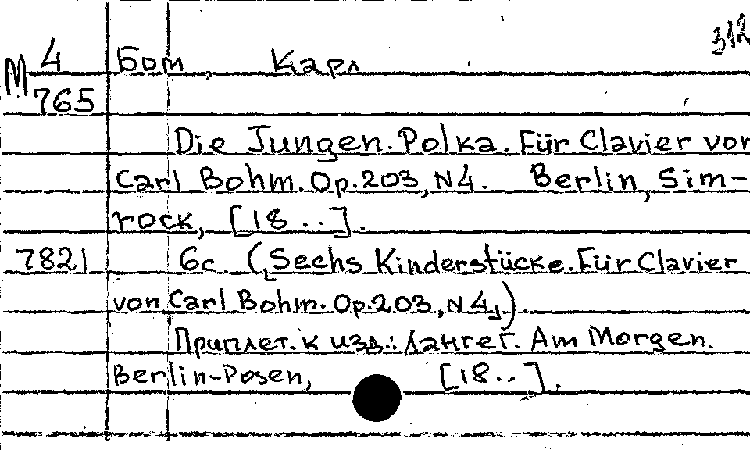 312
M 4 Бом, Карл
765
Die Jungen. Polka. Für Clavier von
Carl Bohm. Op. 203, N4. Berlin, Sim-
rock, [18 ..].
7821 6c. ([Sechs Kinderstücke. Für Clavier
von Carl Bohm. Op. 203, N4]).
Приплет. к изд.: Лангег. Am Morgen.
Berlin-Posen, [18..].